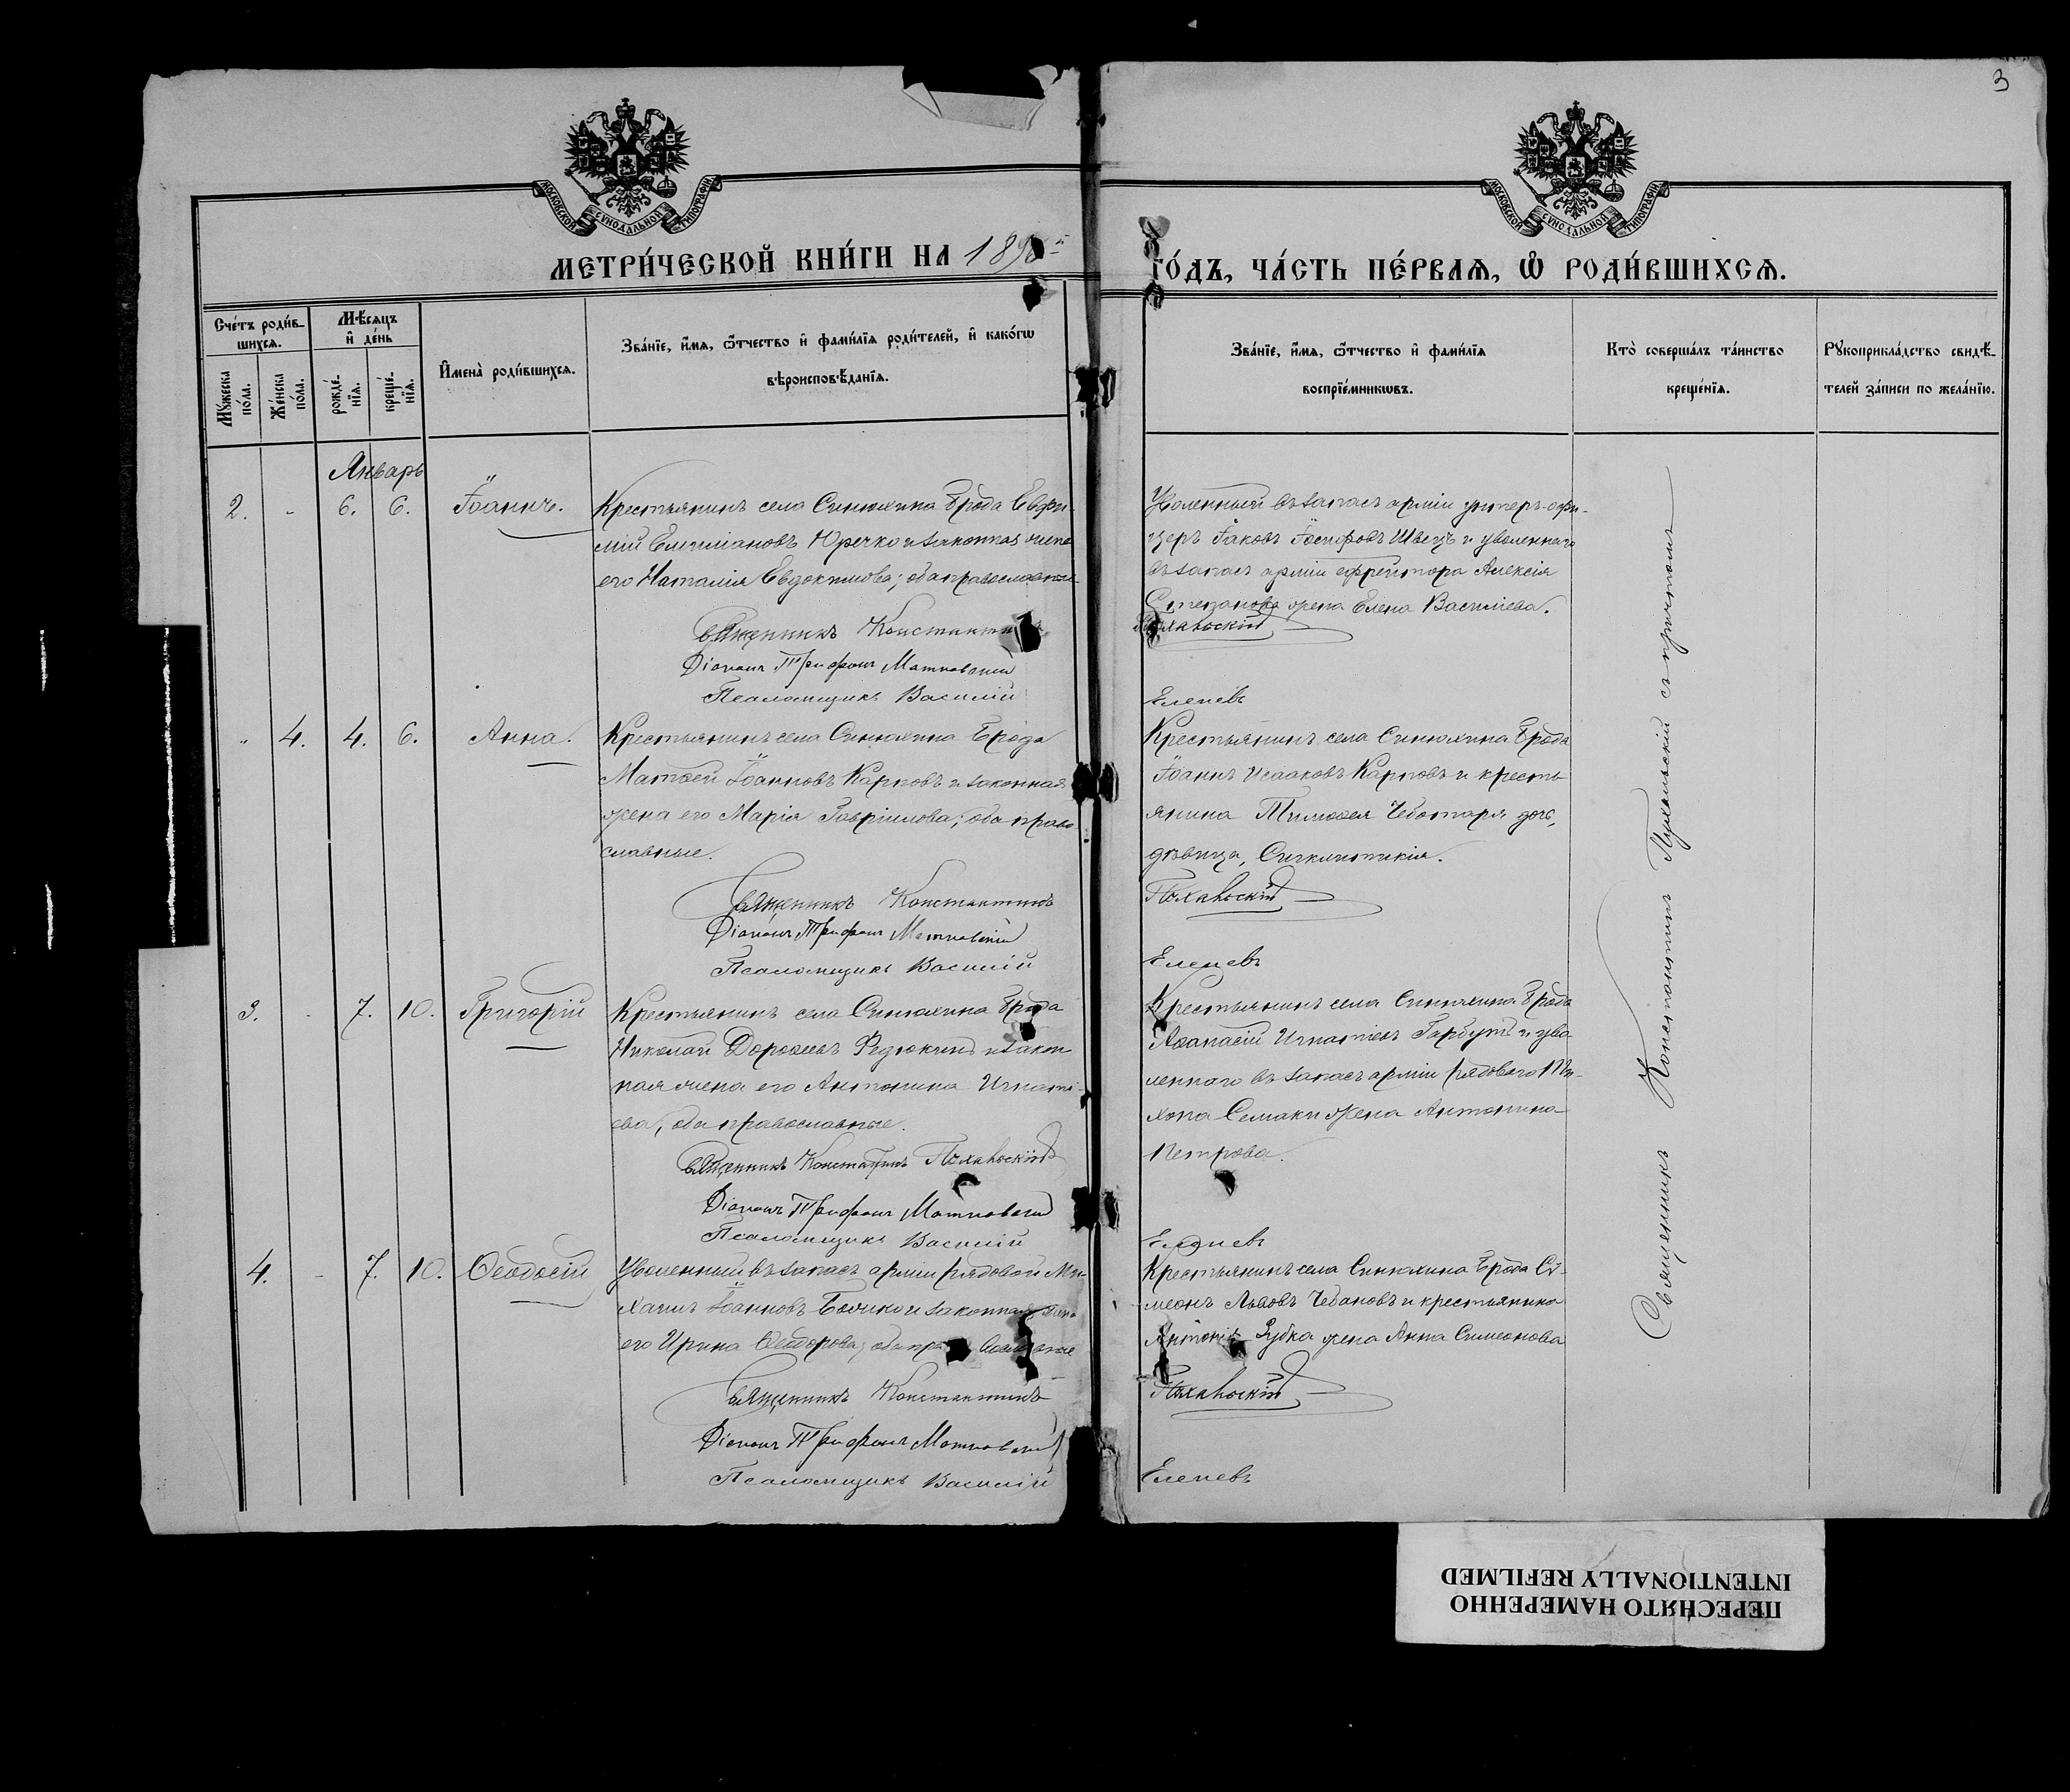 3
МОСКОВСКОЙ СУНОДАЛЬНОЙ ТИПОГРАФІИ
МОСКОВСКОЙ СУНОДАЛЬНОЙ ТИПОГРАФІИ
МЕТРИ́ЧЕСКОЙ КНИ́ГИ НА 189
ГО́ДЪ, ЧА́СТЬ ПЕ́РВАѦ, Ѡ҆ РОДИ́ВШИХСѦ.
Сче́тъ роди́в-
шихсѧ.
Мꙋ́жеска по́ла.
Же́нска по́ла.
Мѣ́сѧцъ
и҆ де́нь
рожде́-нїѧ.
креще́-нїѧ.
И҆мена̀ роди́вшихсѧ.
Зва́нїе, и҆́мѧ, ѻ҆́тчество и҆ фами́лїѧ роди́телей, и҆ како́гѡ
вѣроисповѣ́данїѧ.
Зва́нїе, и҆́мѧ, ѻ҆́тчество и҆ фами́лїѧ
воспрїе́мникѡвъ.
Кто̀ соверша́лъ та́инство
креще́нїѧ.
Рꙋкоприкла́дство свидѣ́-
телей за́писи по жела́нїю.
Январь
2. - 6. 6. Іоаннъ.
Крестьянинъ села Синюхина Брода Евфи-
мій Емиліановъ Юречко и законная жена
его Наталія Евдокимова; оба православные
Священникъ Константинъ
Діаконъ Трифонъ Матковскій
Псаломщикъ Василій
Уволенный въ запасъ арміи унтеръ-офи-
церъ Іаковъ Іосифовъ Швецъ и уволеннаго
въ запасъ арміи ефрейтора Алексія
Степанова жена Елена Василіева.
Пухальскій
Еленевъ
" 4. 4. 6. Анна.
Крестьянинъ села Синюхина Брода
Матѳей Іоанновъ Карповъ и законная
жена его Марія Гавріилова; оба право
славные.
Священникъ Константинъ
Діаконъ Трифонъ Матковскій
Псаломщикъ Василій
Крестьянинъ села Синюхина Брода
Іоаннъ Исааковъ Карповъ и кресть
янина Тимоѳея Чеботаря дочь,
дѣвица, Синклитикія.
Пухальскій
Еленевъ
3. - 7. 10. Григорій
Крестьянинъ села Синюхина Брода
Николай Дороѳеевъ Федюкинъ и закон
ная жена его Антонина Игнаті-
ева, оба православные.
Священникъ Константинъ Пухальскій
Діаконъ Трифонъ Матковскій
Псаломщикъ Василій
Крестьянинъ села Синюхина Брода
Аѳанасій Игнатіевъ Гарбузъ и уво
леннаго въ запасъ арміи рядового Ти-
хона Семаки жена Антонина
Петрова.
Еленевъ
4. - 7. 10. Ѳеодосій
Уволенный въ запасъ арміи рядовой Ми-
хаилъ Іоанновъ и законная жена
его Ирина Ѳеодорова; оба православные
Священникъ Константинъ
Діаконъ Трифонъ Матковскій
Псаломщикъ Василій
Крестьянинъ села Синюхина Брода Си-
меонъ Львовъ Чебановъ и крестьянина
Антонія Зубка жена Анна Симеонова
Пухальскій
Еленевъ
Священникъ Константинъ Пухальскій съ причтомъ
ПЕРЕСНЯТО НАМЕРЕННО
INTENTIONALLY REFILMED